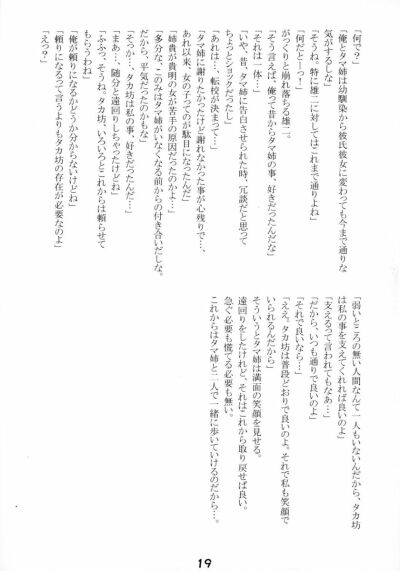 「何で？」
「俺とタマ姉は幼馴染から彼氏彼女に変わっても今まで通りな
気がするしな」
「そうね。特に雄二に対してはこれまで通りよね」
「何だとーっ！」
がっくりと崩れ落ちる雄二。
「そう言えば、俺って昔からタマ姉の事、好きだったんだな」
「それは一体…」
「いや、昔、タマ姉に告白させられた時、冗談だと思って
ちょっとショックだったし」
「あれは…、転校が決まって…」
「タマ姉に謝りたかったけど謝れなかった事が心残りで…、
あれ以来、女の子ってのが駄目になったんだ」
「姉貴が貴明の女が苦手の原因だったのかよ…」
「多分な、このみはタマ姉がいなくなる前からの付き合いだしな。
だから、平気だったのかもな」
「そっか…。タカ坊は私の事、好きだったんだ…」
「まあ…、随分と遠回りしちゃったけどね」
「ふふっ、そうね。タカ坊、いろいろとこれからは頼らせて
もらうわね」
「俺が頼りになるかどうか分からないけどね」
「頼りになるって言うよりもタカ坊の存在が必要なのよ」
「えっ？」
「弱いところの無い人間なんて一人もいないんだから、タカ坊
は私の事を支えてくれれば良いのよ」
「支えるって言われてもなあ…」
「だから、いつも通りで良いのよ」
「それで良いなら…」
「ええ。タカ坊は普段どおりで良いのよ。それで私も笑顔で
いられるんだから」
そういうとタマ姉は満面の笑顔を見せる。
遠回りをしたけれど、それはこれから取り戻せば良い。
急ぐ必要も慌てる必要も無い。
これからはタマ姉と二人で一緒に歩いていけるのだから…。
19